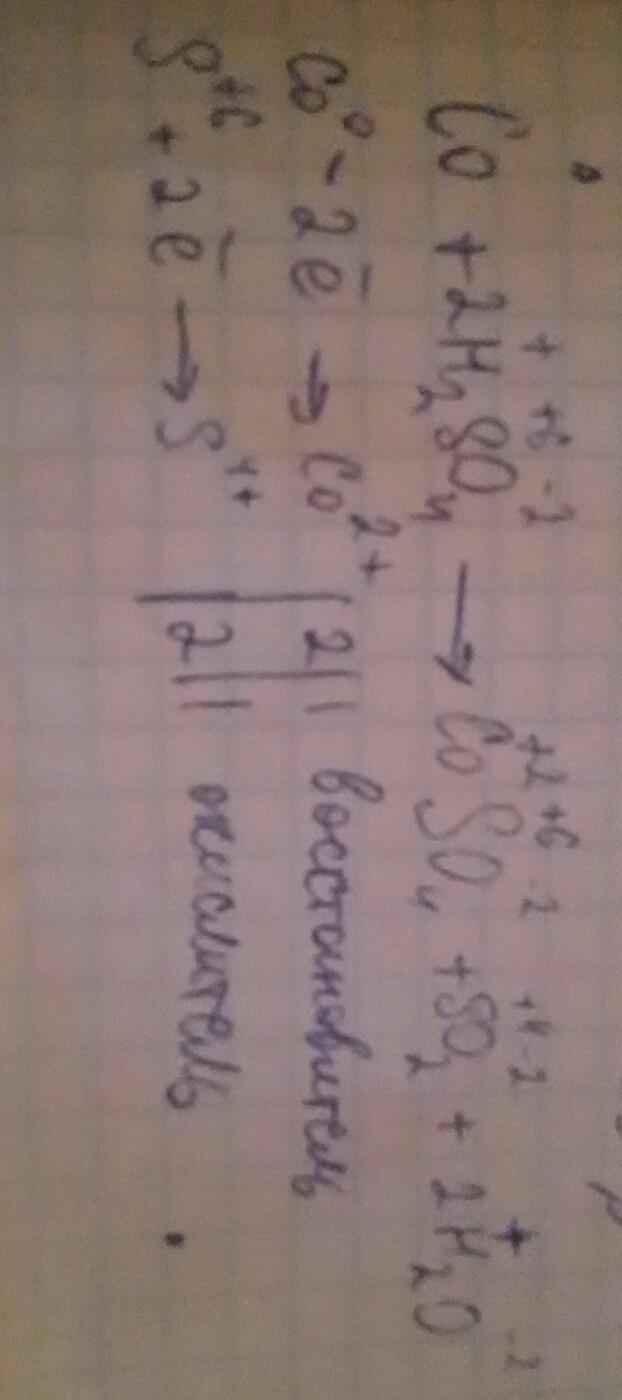 Co⁰ + 2H₂⁺S⁺⁶O₄⁻² → Co⁺²S⁺⁶O₄⁻² + S⁺⁴O₂⁻² + 2H₂⁺O⁻²
Co⁰ - 2ē → Co²⁺ | 2 | 1 восстановитель
S⁺⁶ + 2ē → S⁴⁺ | 2 | 1 окислитель